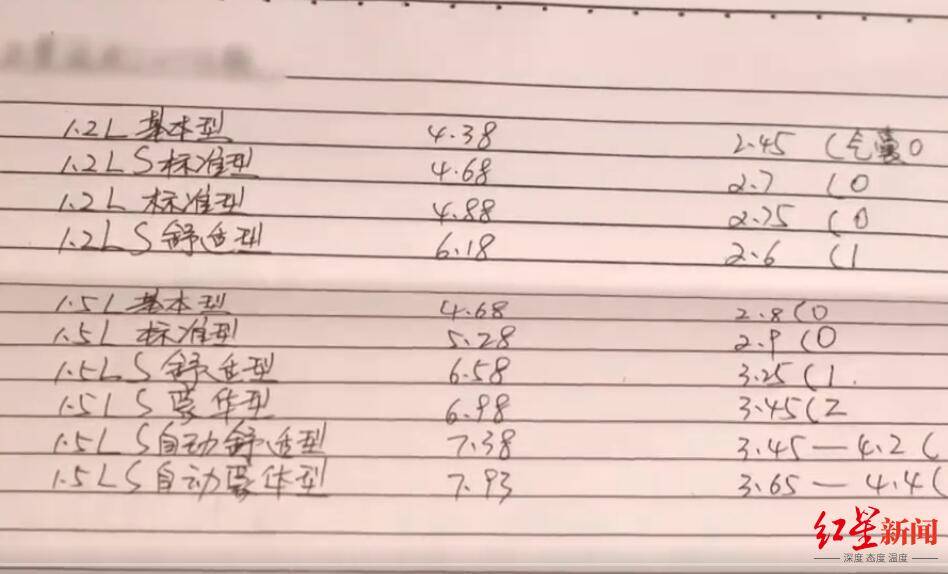 1.2L 基本型 4.38 2.45 (气囊0
1.2L S标准型 4.68 2.7 (0
1.2L 标准型 4.88 2.75 (0
1.2L S 舒适型 6.18 2.6 (1
1.5L 基本型 4.68 2.8 (0
1.5L 标准型 5.28 2.9 (0
1.5L S 舒适型 6.58 3.25 (1.
1.5L S 豪华型 6.98 3.45 (2
1.5L S自动舒适型 7.38 3.45 — 4.2 (
1.5L S自动豪华型 7.93 3.65 — 4.4 (
红星新闻
深度 态度 温度